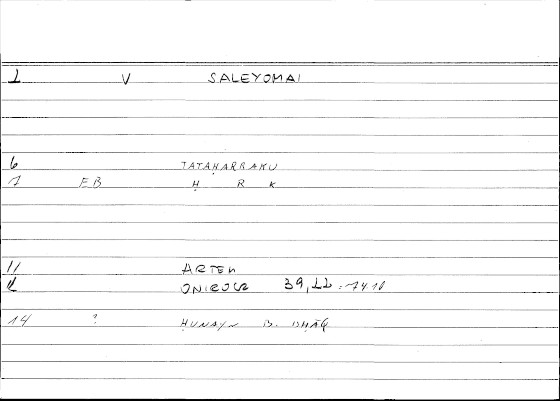 1 V SALEYOMAI
6 TATAḤARRAKU
7 FB Ḥ R K
11 ARTEM
12 ONIROCR 39,22 : 74.10
14 ? ḤUNAYN B. ISḤĀQ